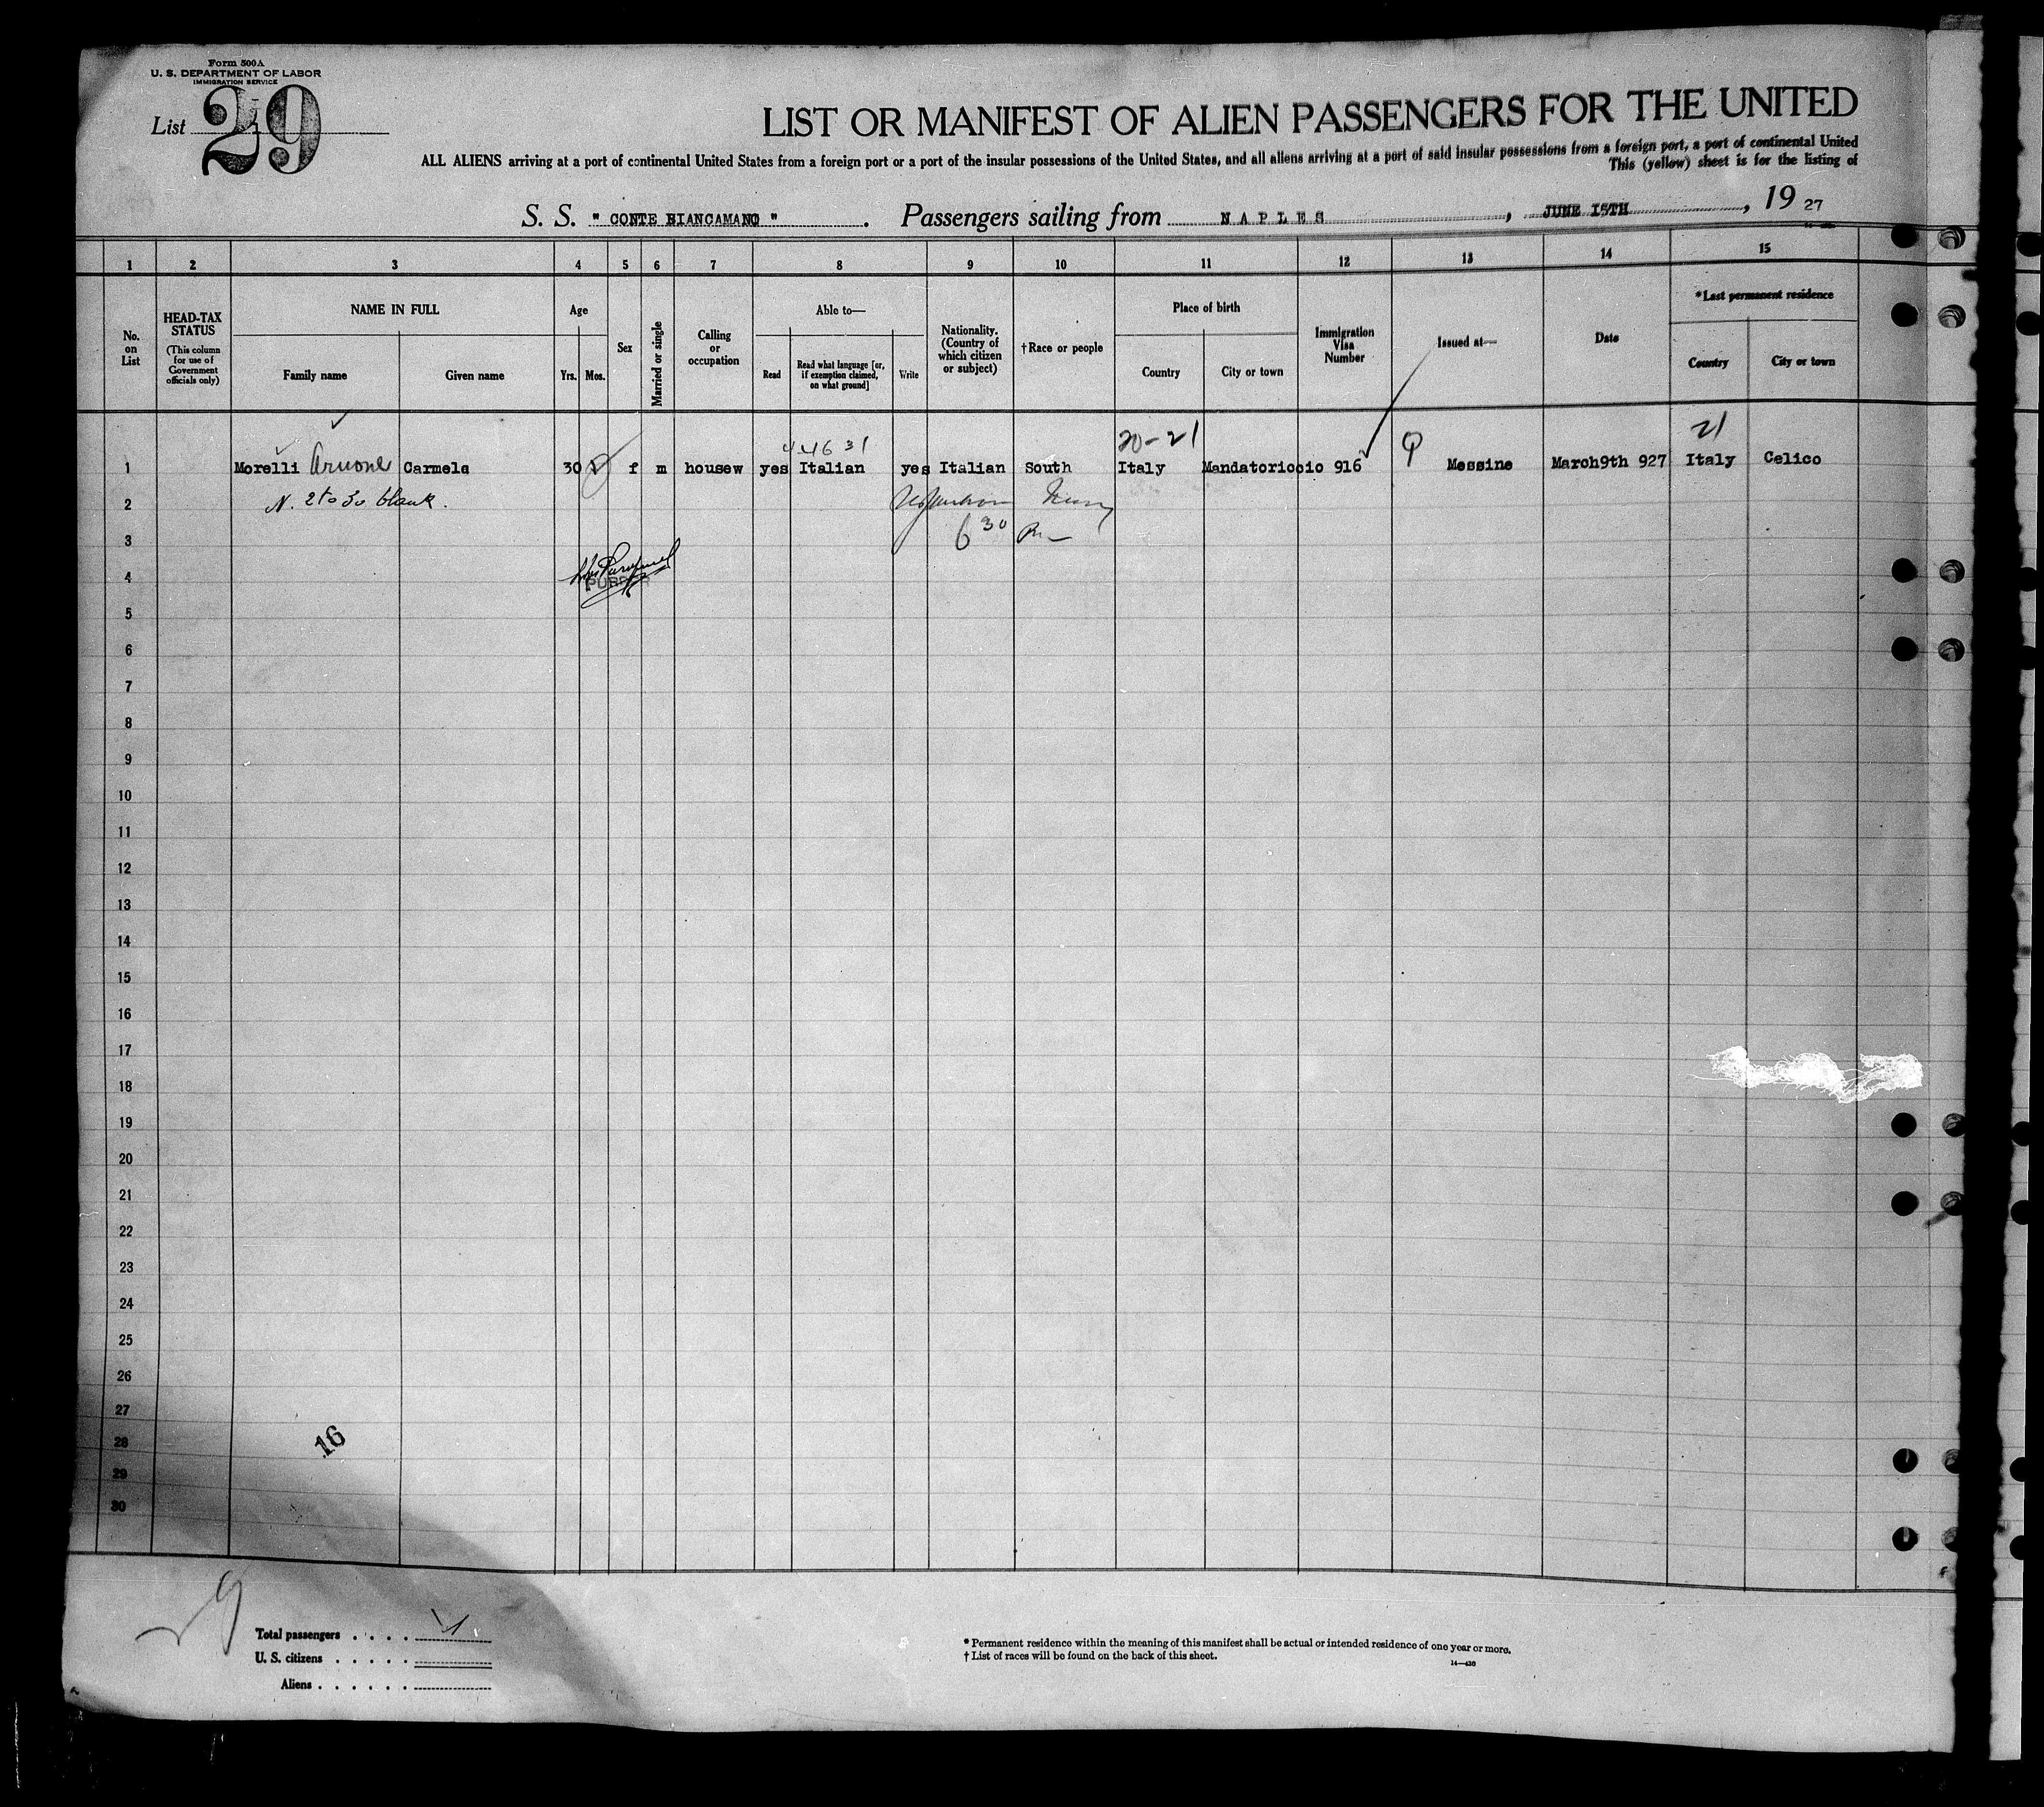 Form 500A
U. S. DEPARTMENT OF LABOR
IMMIGRATION SERVICE
List 29
LIST OR MANIFEST OF ALIEN PASSENGERS FOR THE UNITED
ALL ALIENS arriving at a port of continental United States from a foreign port or a port of the insular possessions of the United States, and all aliens arriving at a port of said insular possessions from a foreign port, a port of continental United
This (yellow) sheet is for the listing of
S. S. " CONTE BIANCAMANO ". Passengers sailing from NAPLES, JUNE 15TH, 19 27
1 2 3 4 5 6 7 8 9 10 11 12 13 14 15
No. on List
HEAD-TAX STATUS (This column for use of Government officials only)
NAME IN FULL
Family name Given name
Age
Yrs. Mos.
Sex
Married or single
Calling or occupation
Able to—
Read Read what language [or, if exemption claimed, on what ground] Write
Nationality. (Country of which citizen or subject)
†Race or people
Place of birth
Country City or town
Immigration Visa Number
Issued at—
Date
*Last permanent residence
Country City or town
44631 20-21 21
1 Morelli Carmela 30 f m housew yes Italian yes Italian South Italy Mandatoriccio 916 Messine March9th 927 Italy Celico
2 N. 2 to 30 blank.
3 6 30
4
5
6
7
8
9
10
11
12
13
14
15
16
17
18
19
20
21
22
23
24
25
26
27
28
29
30
16
29
Total passengers . . . . 1
U. S. citizens . . . . .
Aliens . . . . . .
* Permanent residence within the meaning of this manifest shall be actual or intended residence of one year or more.
† List of races will be found on the back of this sheet.
14—430